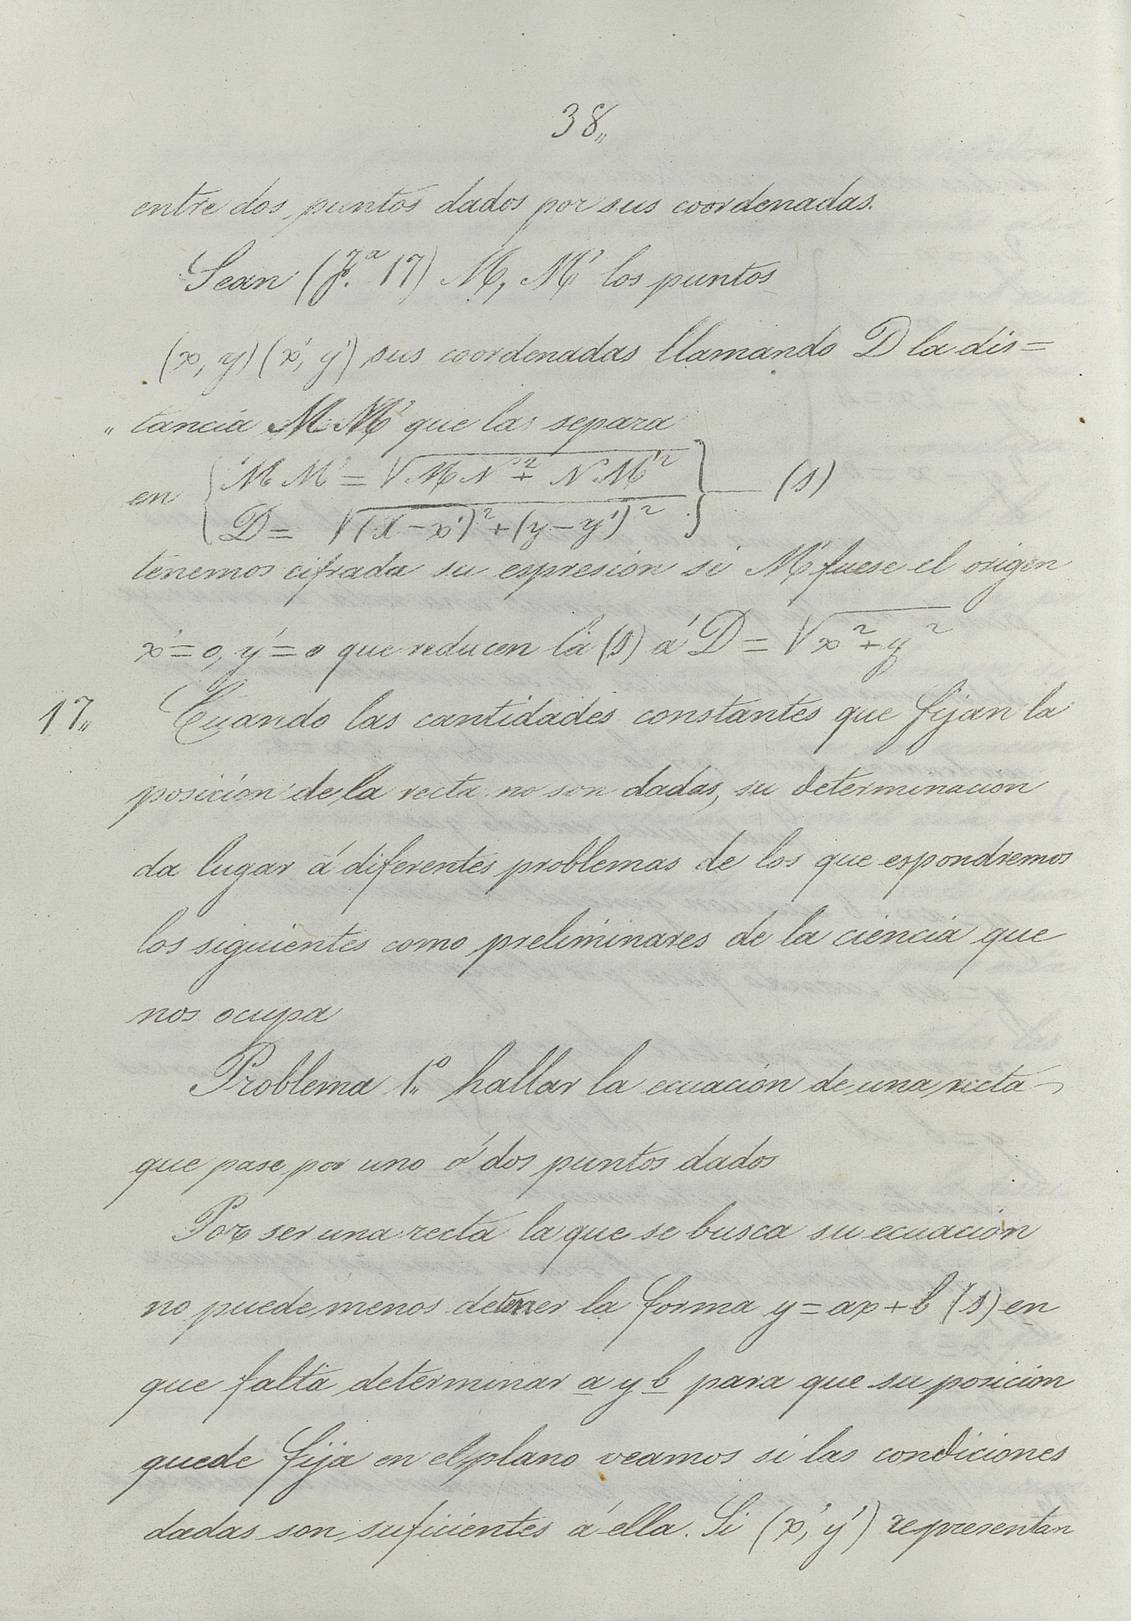 38„
entre dos puntos dados por sus coordenadas.
Sean (f.ª 17) M, M' los puntos
(x, y) (x', y') sus coordenadas llamando D la dis=
„ tancia M M' que las separa
en { M M' = √(M N² + N M'²)
D = √((x - x')² + (y - y')²) } — (1)
tenemos cifrada su espresión si M' fuese el origen
x'=0, y'=0 que reducen la (1) á D = √(x² + y²)
17„ Cuando las cantidades constantes que fijan la
posición de la recta no son dadas, su determinacion
da lugar á diferentes problemas de los que espondremos
los siguientes como preliminares de la ciencia que
nos ocupa
Problema 1º hallar la ecuación de una recta
que pase por uno ó dos puntos dados
Por ser una recta la que se busca su ecuación
no puede menos de tener la forma y = ax + b (1) en
que falta determinar a y b para que su posición
quede fija en el plano veamos si las condiciones
dadas son suficientes á ella. Si (x', y') representan